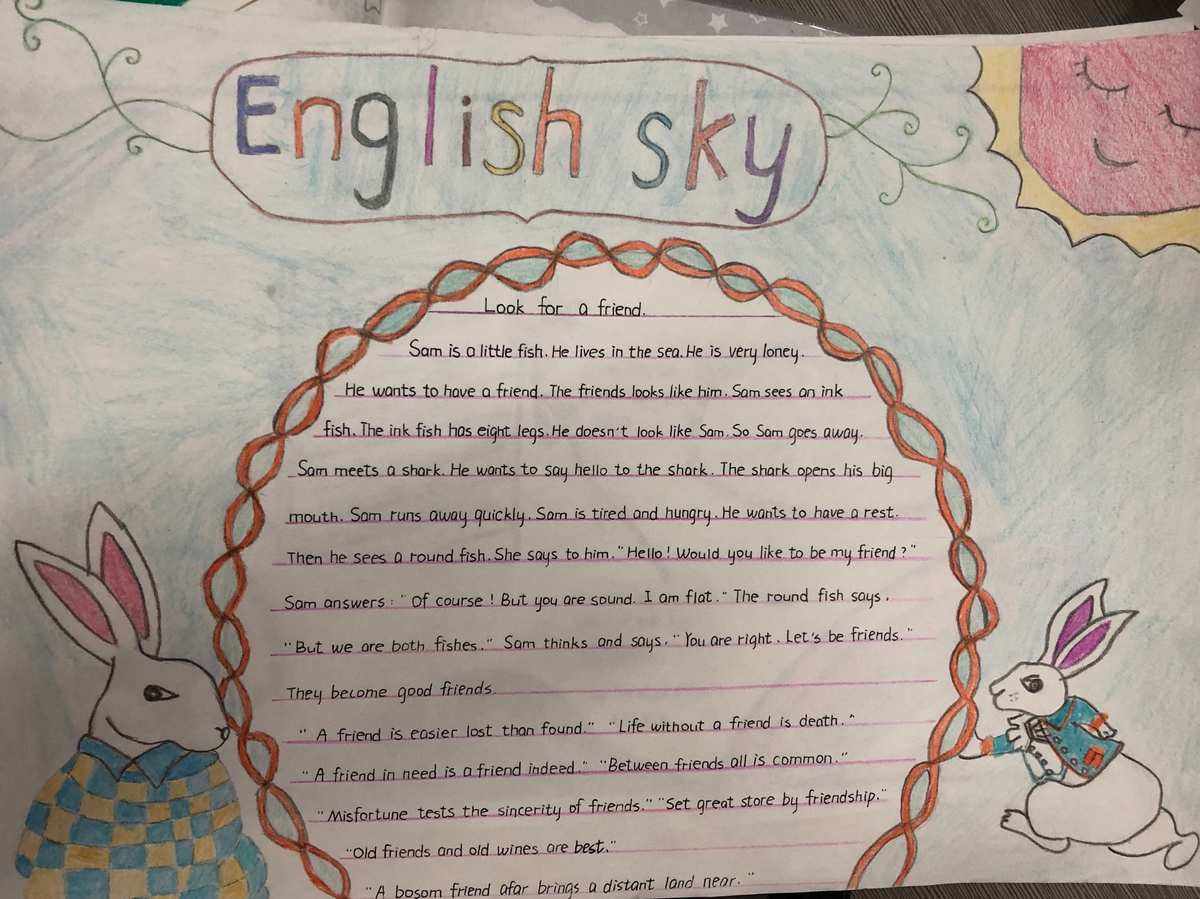 English sky
Look for a friend.
Sam is a little fish. He lives in the sea. He is very loney.
He wants to have a friend. The friends looks like him. Sam sees an ink
fish. The ink fish has eight legs. He doesn't look like Sam. So Sam goes away.
Sam meets a shark. He wants to say hello to the shark. The shark opens his big
mouth. Sam runs away quickly. Sam is tired and hungry. He wants to have a rest.
Then he sees a round fish. She says to him. "Hello! Would you like to be my friend?"
Sam answers: "Of course! But you are sound. I am flat." The round fish says.
"But we are both fishes." Sam thinks and says. "You are right. Let's be friends."
They become good friends.
"A friend is easier lost than found." "Life without a friend is death."
"A friend in need is a friend indeed." "Between friends all is common."
"Misfortune tests the sincerity of friends." "Set great store by friendship."
"Old friends and old wines are best."
"A bosom friend afar brings a distant land near."